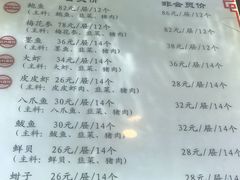 非会员价
鲍鱼 82元/层/12个 86元/层/12个
（主料：鲍鱼、韭菜、猪肉）
梅花参 78元/层/12个
（主料：梅花参、韭菜、猪肉）
墨鱼 36元/层/14个 38元/层/14个
（主料：墨鱼、韭菜、猪肉）
大虾 34元/层/14个
（主料：大虾、韭菜、猪肉）
皮皮虾 30元/层/14个 32元/层/14个
（主料：皮皮虾、韭菜、猪肉）
八爪鱼 30元/层/14个 32元/层/14个
（主料：八爪鱼、韭菜、猪肉）
鲅鱼 26元/层/14个 28元/层/14个
（主料：鲅鱼、韭菜、猪肉）
鲜贝 26元/层/14个 28元/层/14个
（主料：鲜贝、韭菜、猪肉）
蚶子 26元/层/14个 28元/层/14个